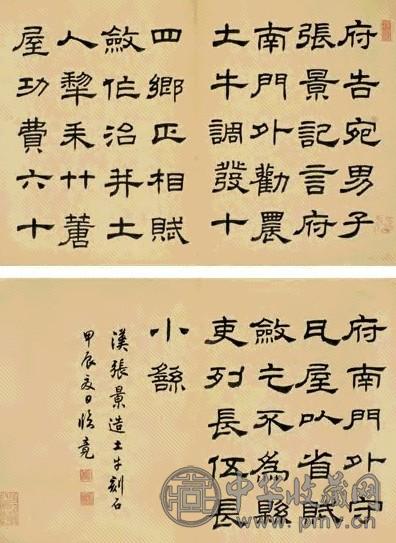 府告宛男子
張景記言府
南門外勸農
土牛調發十
四鄉正相賦
斂作治并土
人犂耒艹蓾
屋功費六十
府南門外守
瓦屋以省賦
斂乞不為縣
吏列長伍長
小繇
漢張景造土牛刻石
甲辰夏日臨竟
中华收藏网
www.pmv.cn